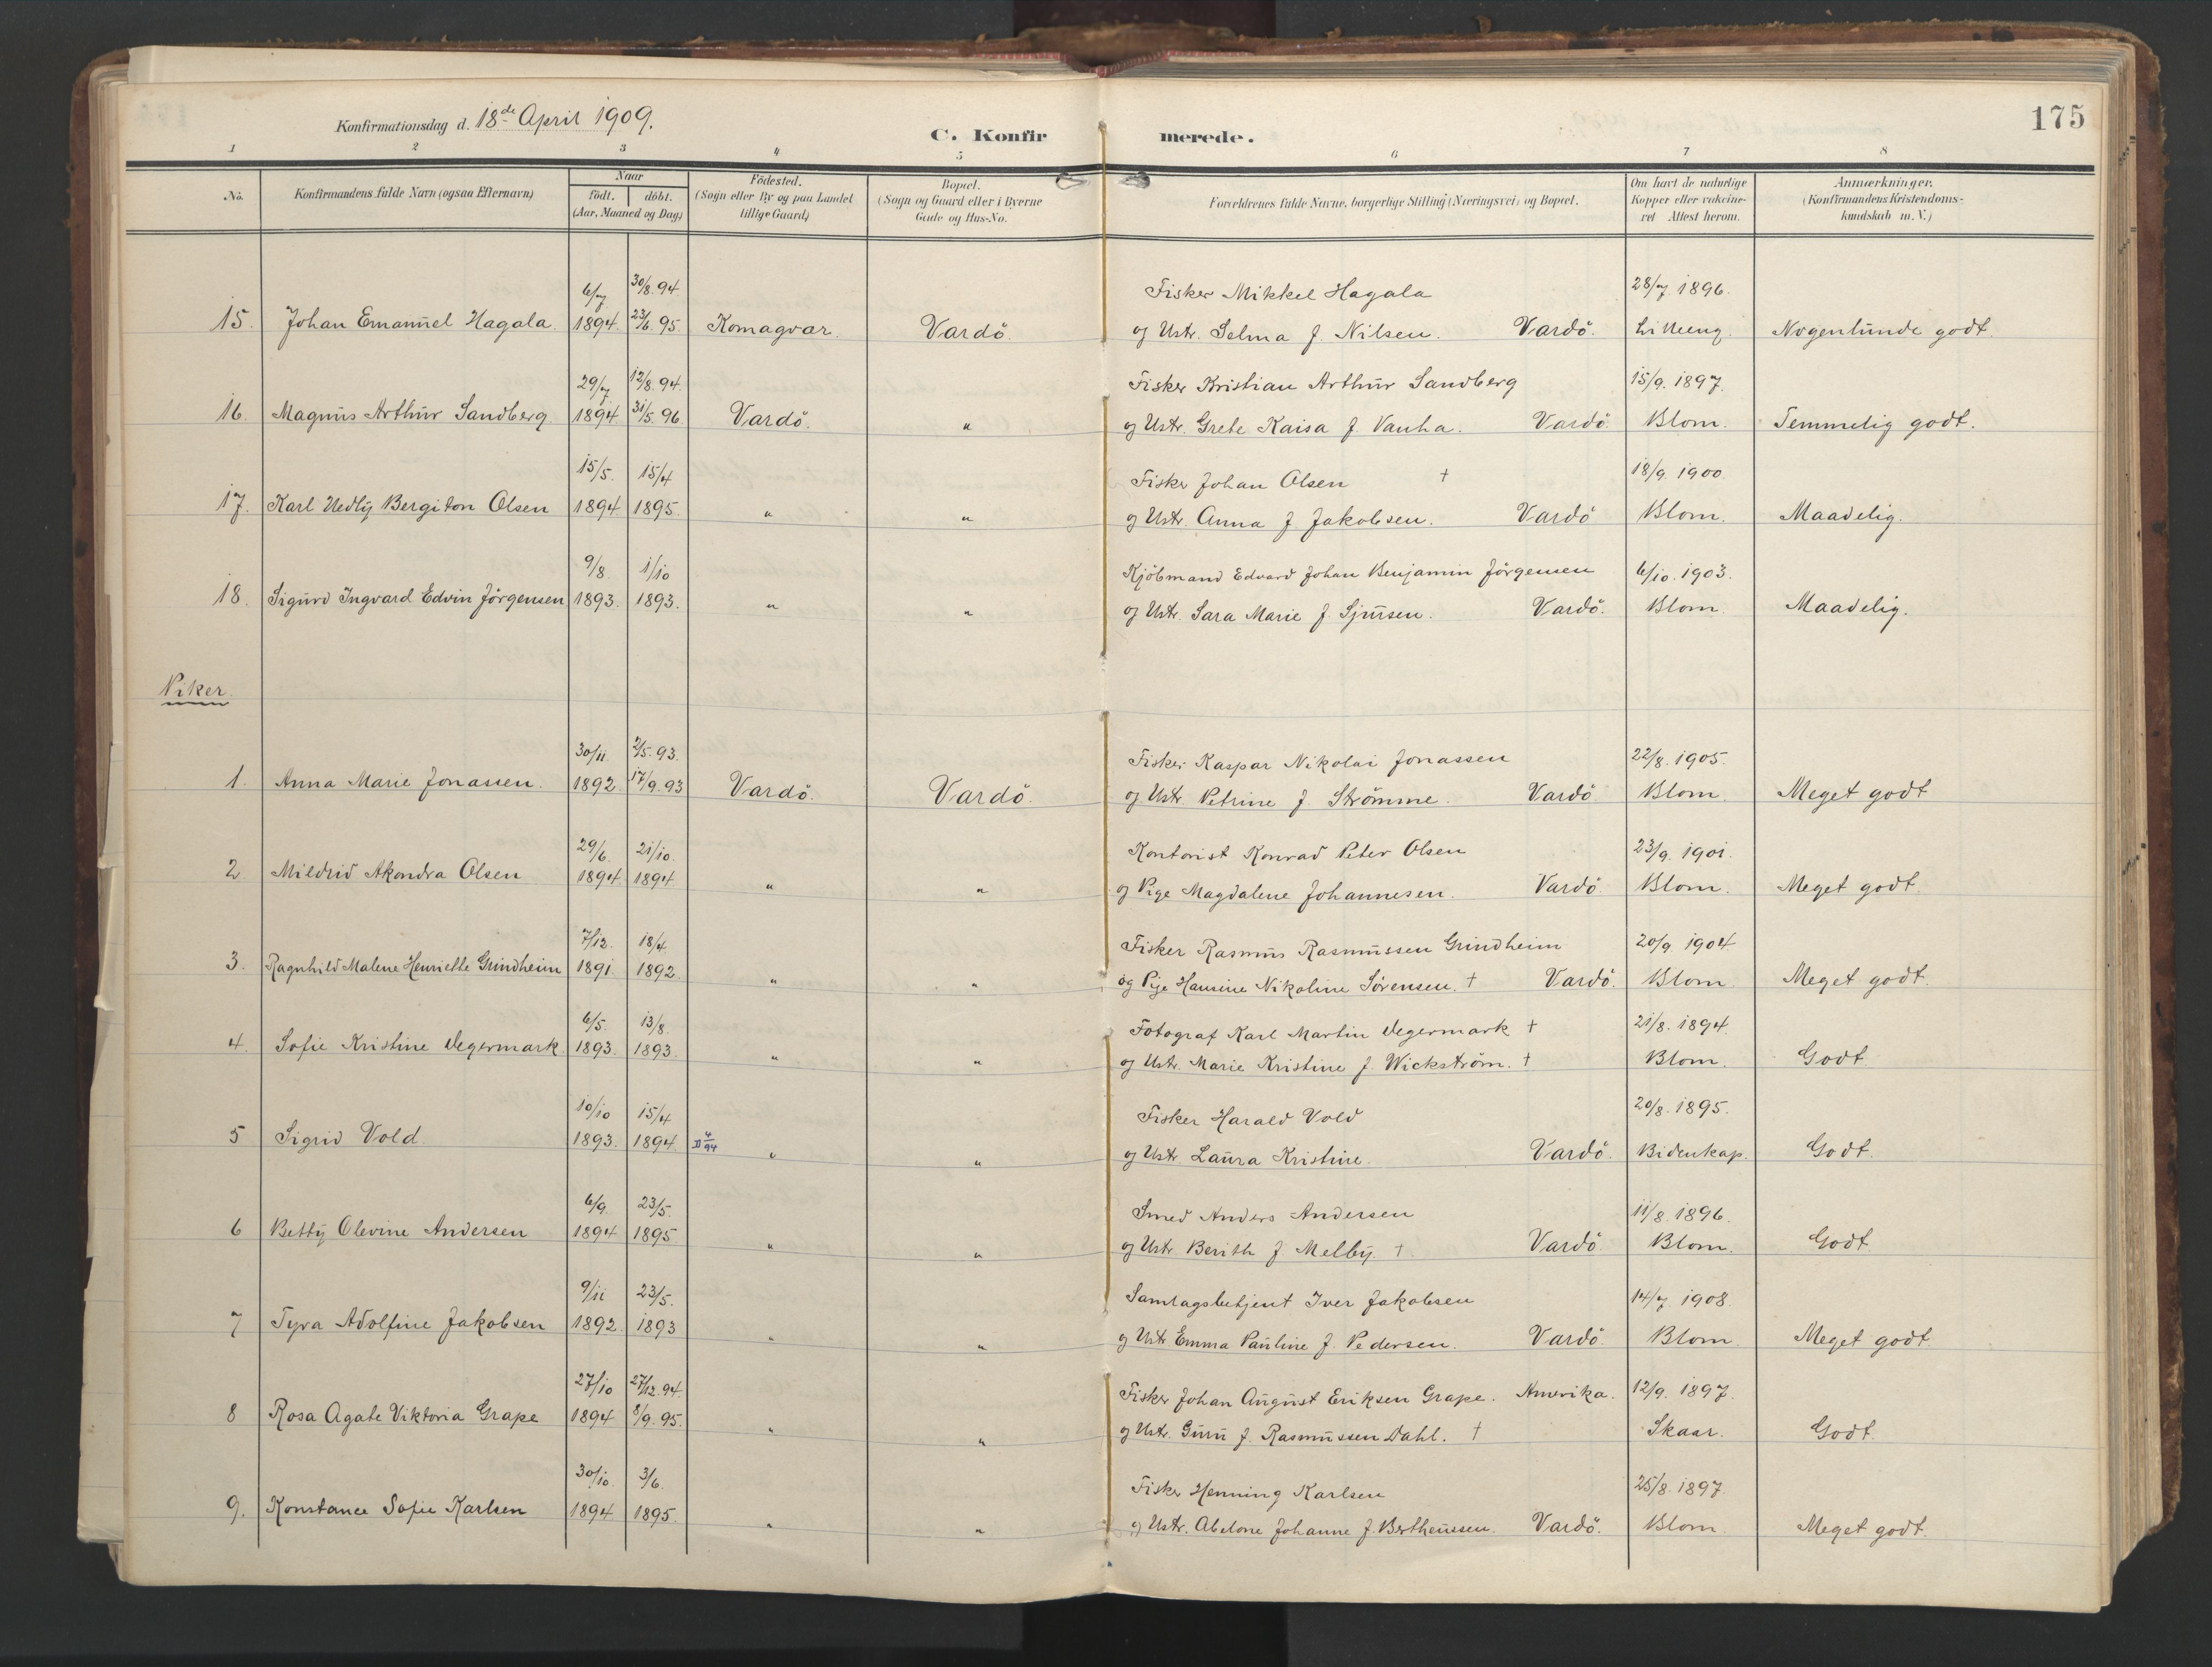 175
Konfirmationsdag d. 18de April 1909.
C. Konfirmerede.
1 2 3 4 5 6 7 8
No. Konfirmandens fulde Navn (ogsaa Efternavn) Naar födt. döbt. (Aar, Maaned og Dag) Födested. (Sogn eller By og paa Landet tillige Gaard) Bopæl. (Sogn og Gaard eller i Byerne Gade og Hus-No. Forældrenes fulde Navne, borgerlige Stilling (Næringsvei) og Bopæl. Om havt de naturlige Kopper eller vakcineret Attest herom. Anmærkninger. (Konfirmandens Kristendomskundskab m. V.)
6/7 30/8.94. Fisker Mikkel Hagala 28/7.1896.
15. Johan Emanuel Hagala. 1894. 23/6.95 Komagvær. Vardö. og Ustr. Selma f. Nilsen. Vardö. Lilleeng. Nogenlunde godt.
29/7 12/8.94. Fisker Kristian Arthur Sandberg 15/9.1897.
16. Magnus Arthur Sandberg. 1894. 31/5.96 Vardö. " og Ustr. Grete Kaisa f. Vanha. Vardö. Blom. Temmelig godt.
15/5. 15/4 Fisker Johan Olsen † 18/9.1900.
17. Karl Hedly Bergiton Olsen 1894. 1895. " " og Ustr. Anna f. Jakobsen. Vardö Blom. Maadelig.
9/8. 1/10 Kjöbmand Edvard Johan Benjamin Jörgensen 6/10.1903.
18. Sigurd Ingvard Edvin Jörgensen 1893. 1893. " " og Ustr. Sara Marie f. Sjursen. Vardö. Blom. Maadelig.
Piker.
30/11. 2/5.93. Fisker Kaspar Nikolai Jonassen 22/8.1905.
1. Anna Marie Jonassen. 1892. 17/9.93 Vardö. Vardö. og Ustr. Petrine f. Strömme. Vardö Blom. Meget godt
29/6. 21/10. Kontorist Konrad Peter Olsen 23/9.1901.
2. Mildrid Akondra Olsen 1894. 1894 " " og Pige Magdalene Johannesen. Vardö. Blom. Meget godt.
7/12. 18/4 Fisker Rasmus Rasmussen Grindheim 20/9 1904
3. Ragnhild Malene Henriette Grindheim 1891. 1892. " " og Pige Hansine Nikoline Sörensen. † Vardö. Blom. Meget godt.
6/5. 13/8. Fotograf Karl Martin Vegermark † 21/8.1894.
4. Sofie Kristine Vegermark. 1893. 1893. " " og Ustr. Marie Kristine f. Wickström. † Blom. Godt.
10/10 15/4 Fisker Harald Vold 20/8.1895.
5 Sigrid Vold 1893. 1894 " " og Ustr. Laura Kristine. Vardö. Bidenkap. Godt.
6/9. 23/5. Smed Anders Andersen 11/8.1896.
6 Betty Olevine Andersen 1894 1895 " " og Ustr. Berith f. Melby. † Vardö. Blom. Godt.
9/11 23/5. Samlagsbetjent Iver Jakobsen 14/7 1908.
7 Tyra Adolfine Jakobsen 1892. 1893 " " og Ustr. Emma Pauline f. Pedersen. Vardö. Blom. Meget godt.
27/10 27/12.94. Fisker Johan August Eriksen Grape. Amerika. 12/9.1897.
8 Rosa Agate Viktoria Grape 1894 8/9.95. " " og Ustr. Guru f. Rasmussen Dahl. † Skaar. Godt.
30/10. 3/6. Fisker Henning Karlsen 25/8.1897.
9. Konstance Sofie Karlsen 1894 1895. " " og Ustr. Abelone Johanne f. Bertheussen. Vardö. Blom. Meget godt.